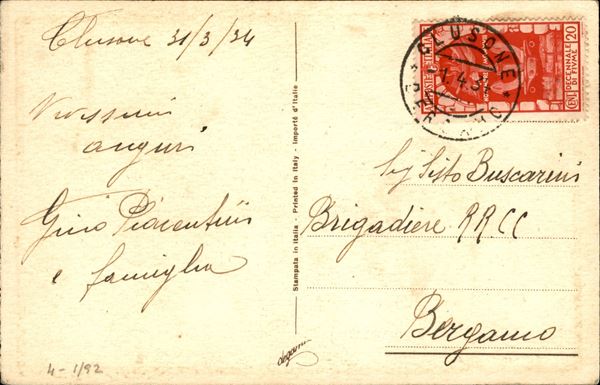 Clusone 31/3/34
Vivissimi
auguri
Gino Piacentini
e famiglia
4-1/92
Stampata in Italia - Printed in Italy - Importé d'Italie
CLUSONE
1.4.34
DECENNALE
DI FIUME
20
Sig Sisto Buscarini
Brigadiere RRCC
Bergamo